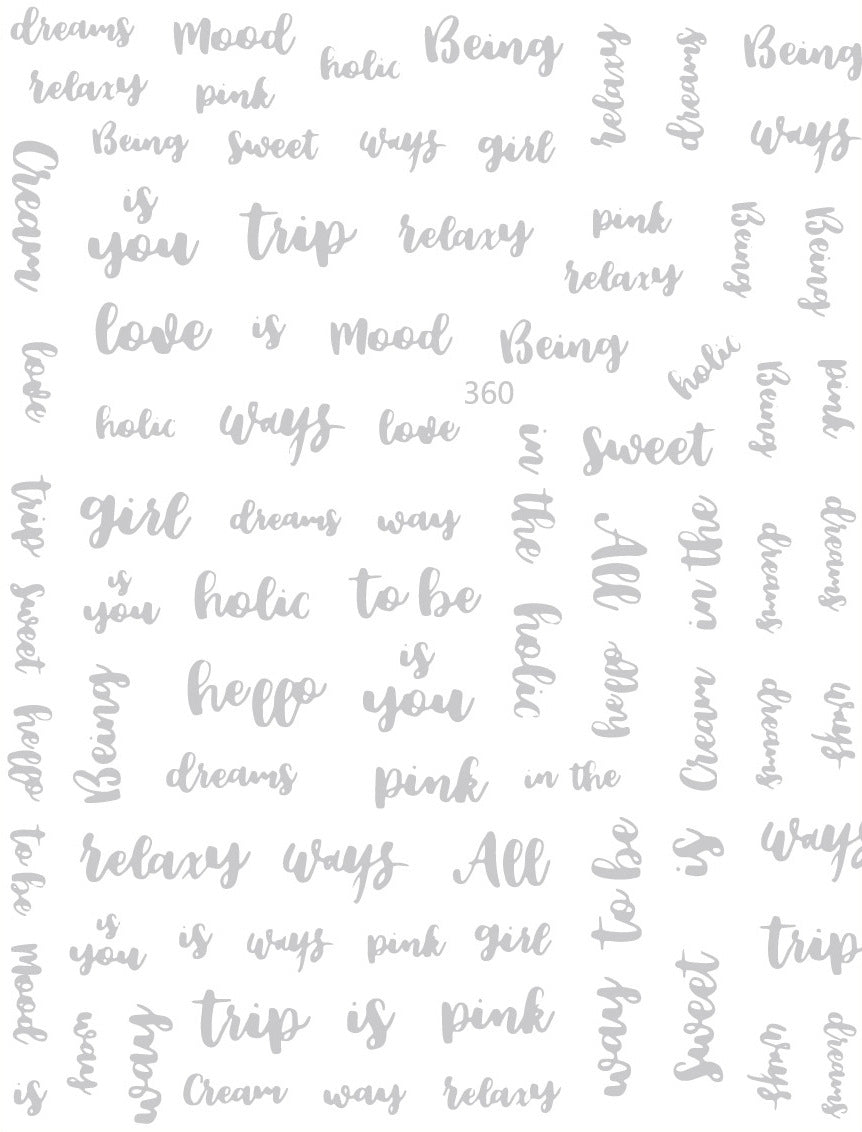 dreams Mood holic Being relaxy dreams Being
relaxy pink
Being sweet ways girl ways
Cream
is
you trip relaxy pink Being Being
relaxy
love is Mood Being holic Being pink
love
360
holic ways love in the sweet
trip girl dreams way All in the dreams dreams
is
you holic to be holic
sweet
is
you
hello hello Cream dreams ways
hello Being dreams pink in the
relaxy ways All way to be is ways
to be
is
you is ways pink girl sweet trip
Mood way way trip is pink ways dreams
is Cream way relaxy